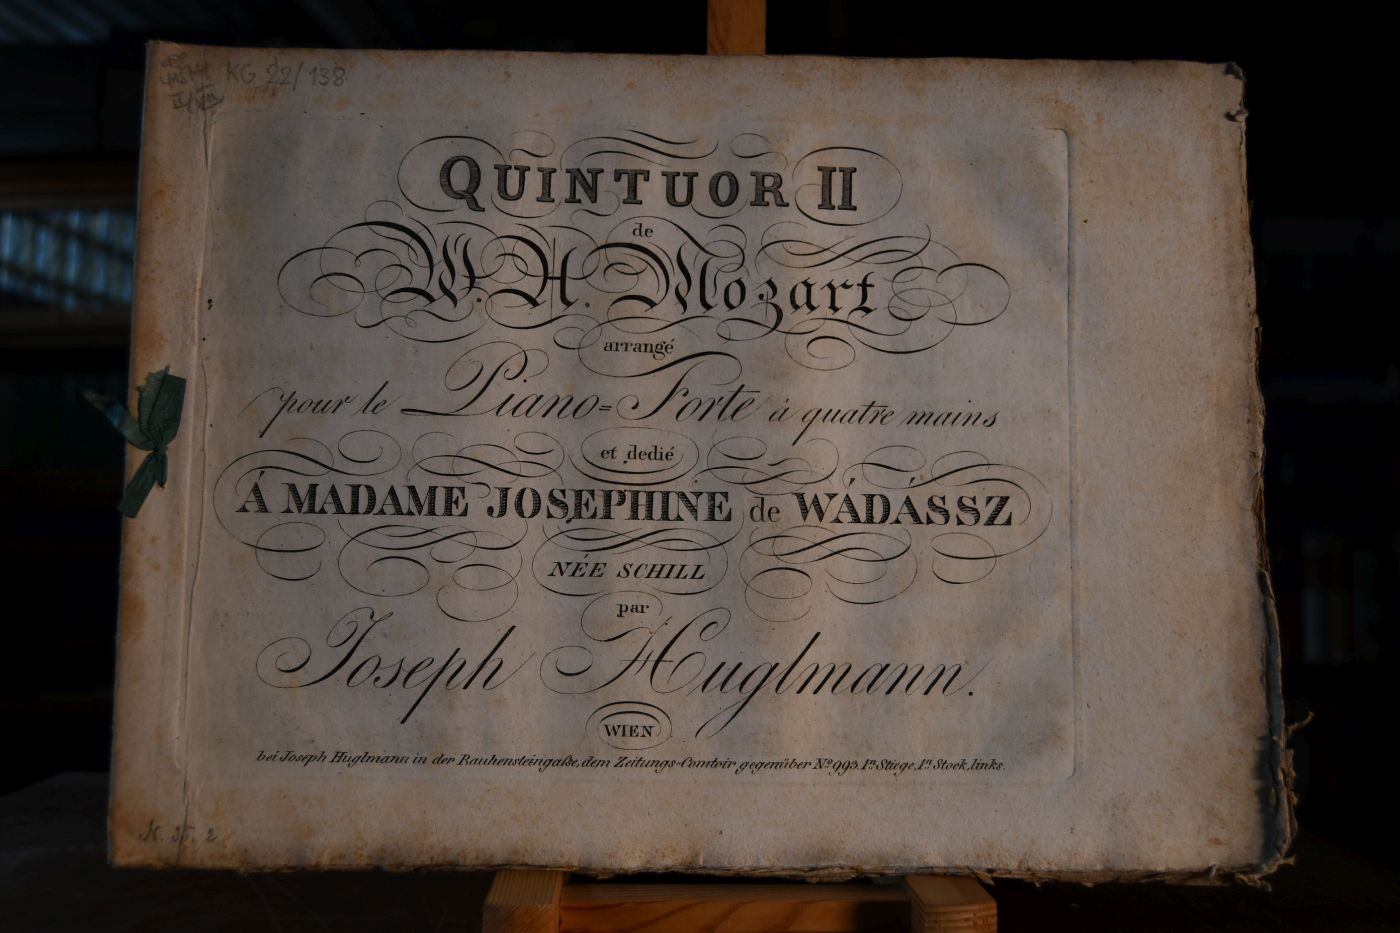 KG 22/138
QUINTUOR II
de
W. A. Mozart
arrangé
pour le Piano=Forte à quatre mains
et dedié
Á MADAME JOSEPHINE de WÁDÁSSZ
NÉE SCHILL
par
Joseph Huglmann.
WIEN
bei Joseph Huglmann in der Rauhensteingaße, dem Zeitungs-Comtoir gegenüber No. 993. 1te Stiege, 1ter Stock, links.